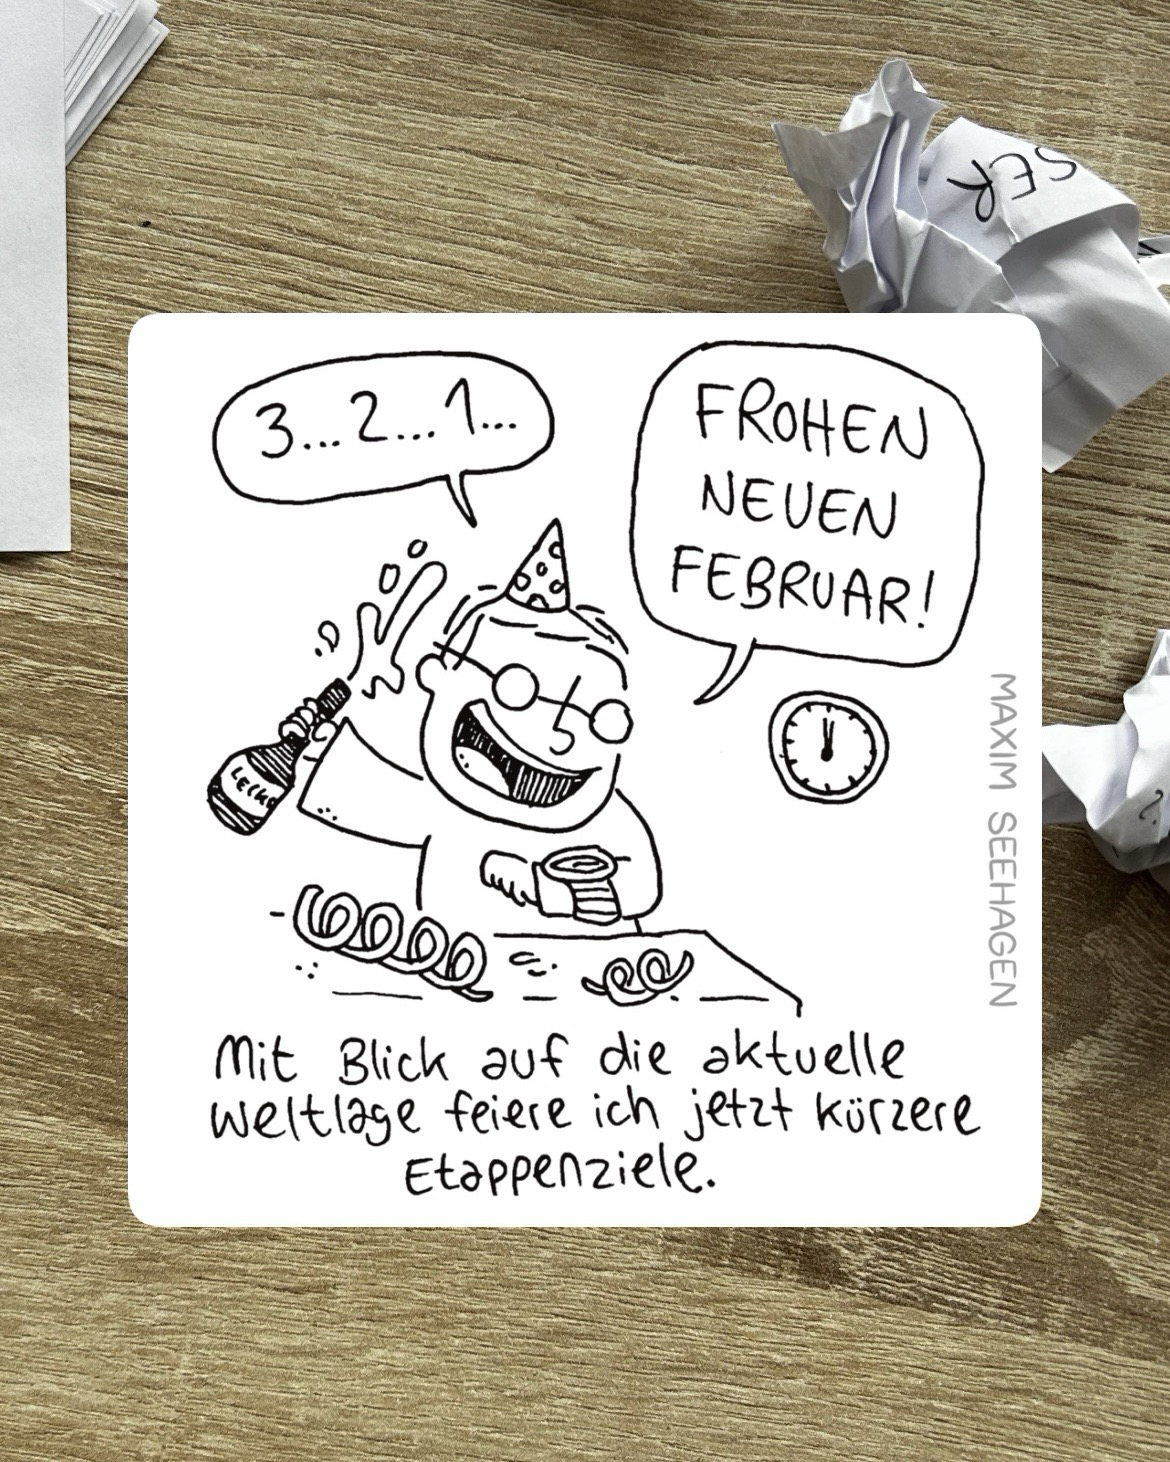 3...2...1...
FROHEN
NEUEN
FEBRUAR!
MAXIM SEEHAGEN
Mit Blick auf die aktuelle
Weltlage feiere ich jetzt kürzere
Etappenziele.